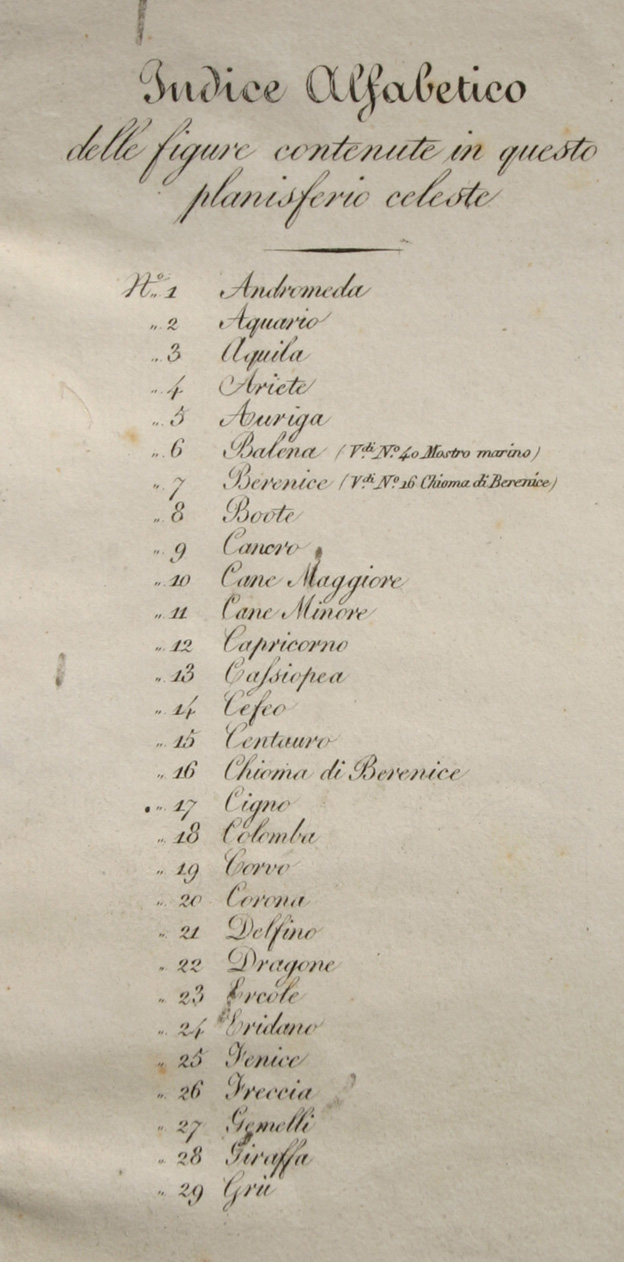 Indice Alfabetico
delle figure contenute in questo
planisferio celeste
N.º 1 Andromeda
„ 2 Aquario
„ 3 Aquila
„ 4 Ariete
„ 5 Auriga
„ 6 Balena (V.di N.º 40 Mostro marino)
„ 7 Berenice (V.di N.º 16 Chioma di Berenice)
„ 8 Boote
„ 9 Cancro
„ 10 Cane Maggiore
„ 11 Cane Minore
„ 12 Capricorno
„ 13 Caſsiopea
„ 14 Cefeo
„ 15 Centauro
„ 16 Chioma di Berenice
„ 17 Cigno
„ 18 Colomba
„ 19 Corvo
„ 20 Corona
„ 21 Delfino
„ 22 Dragone
„ 23 Ercole
„ 24 Eridano
„ 25 Fenice
„ 26 Freccia
„ 27 Gemelli
„ 28 Giraffa
„ 29 Grù